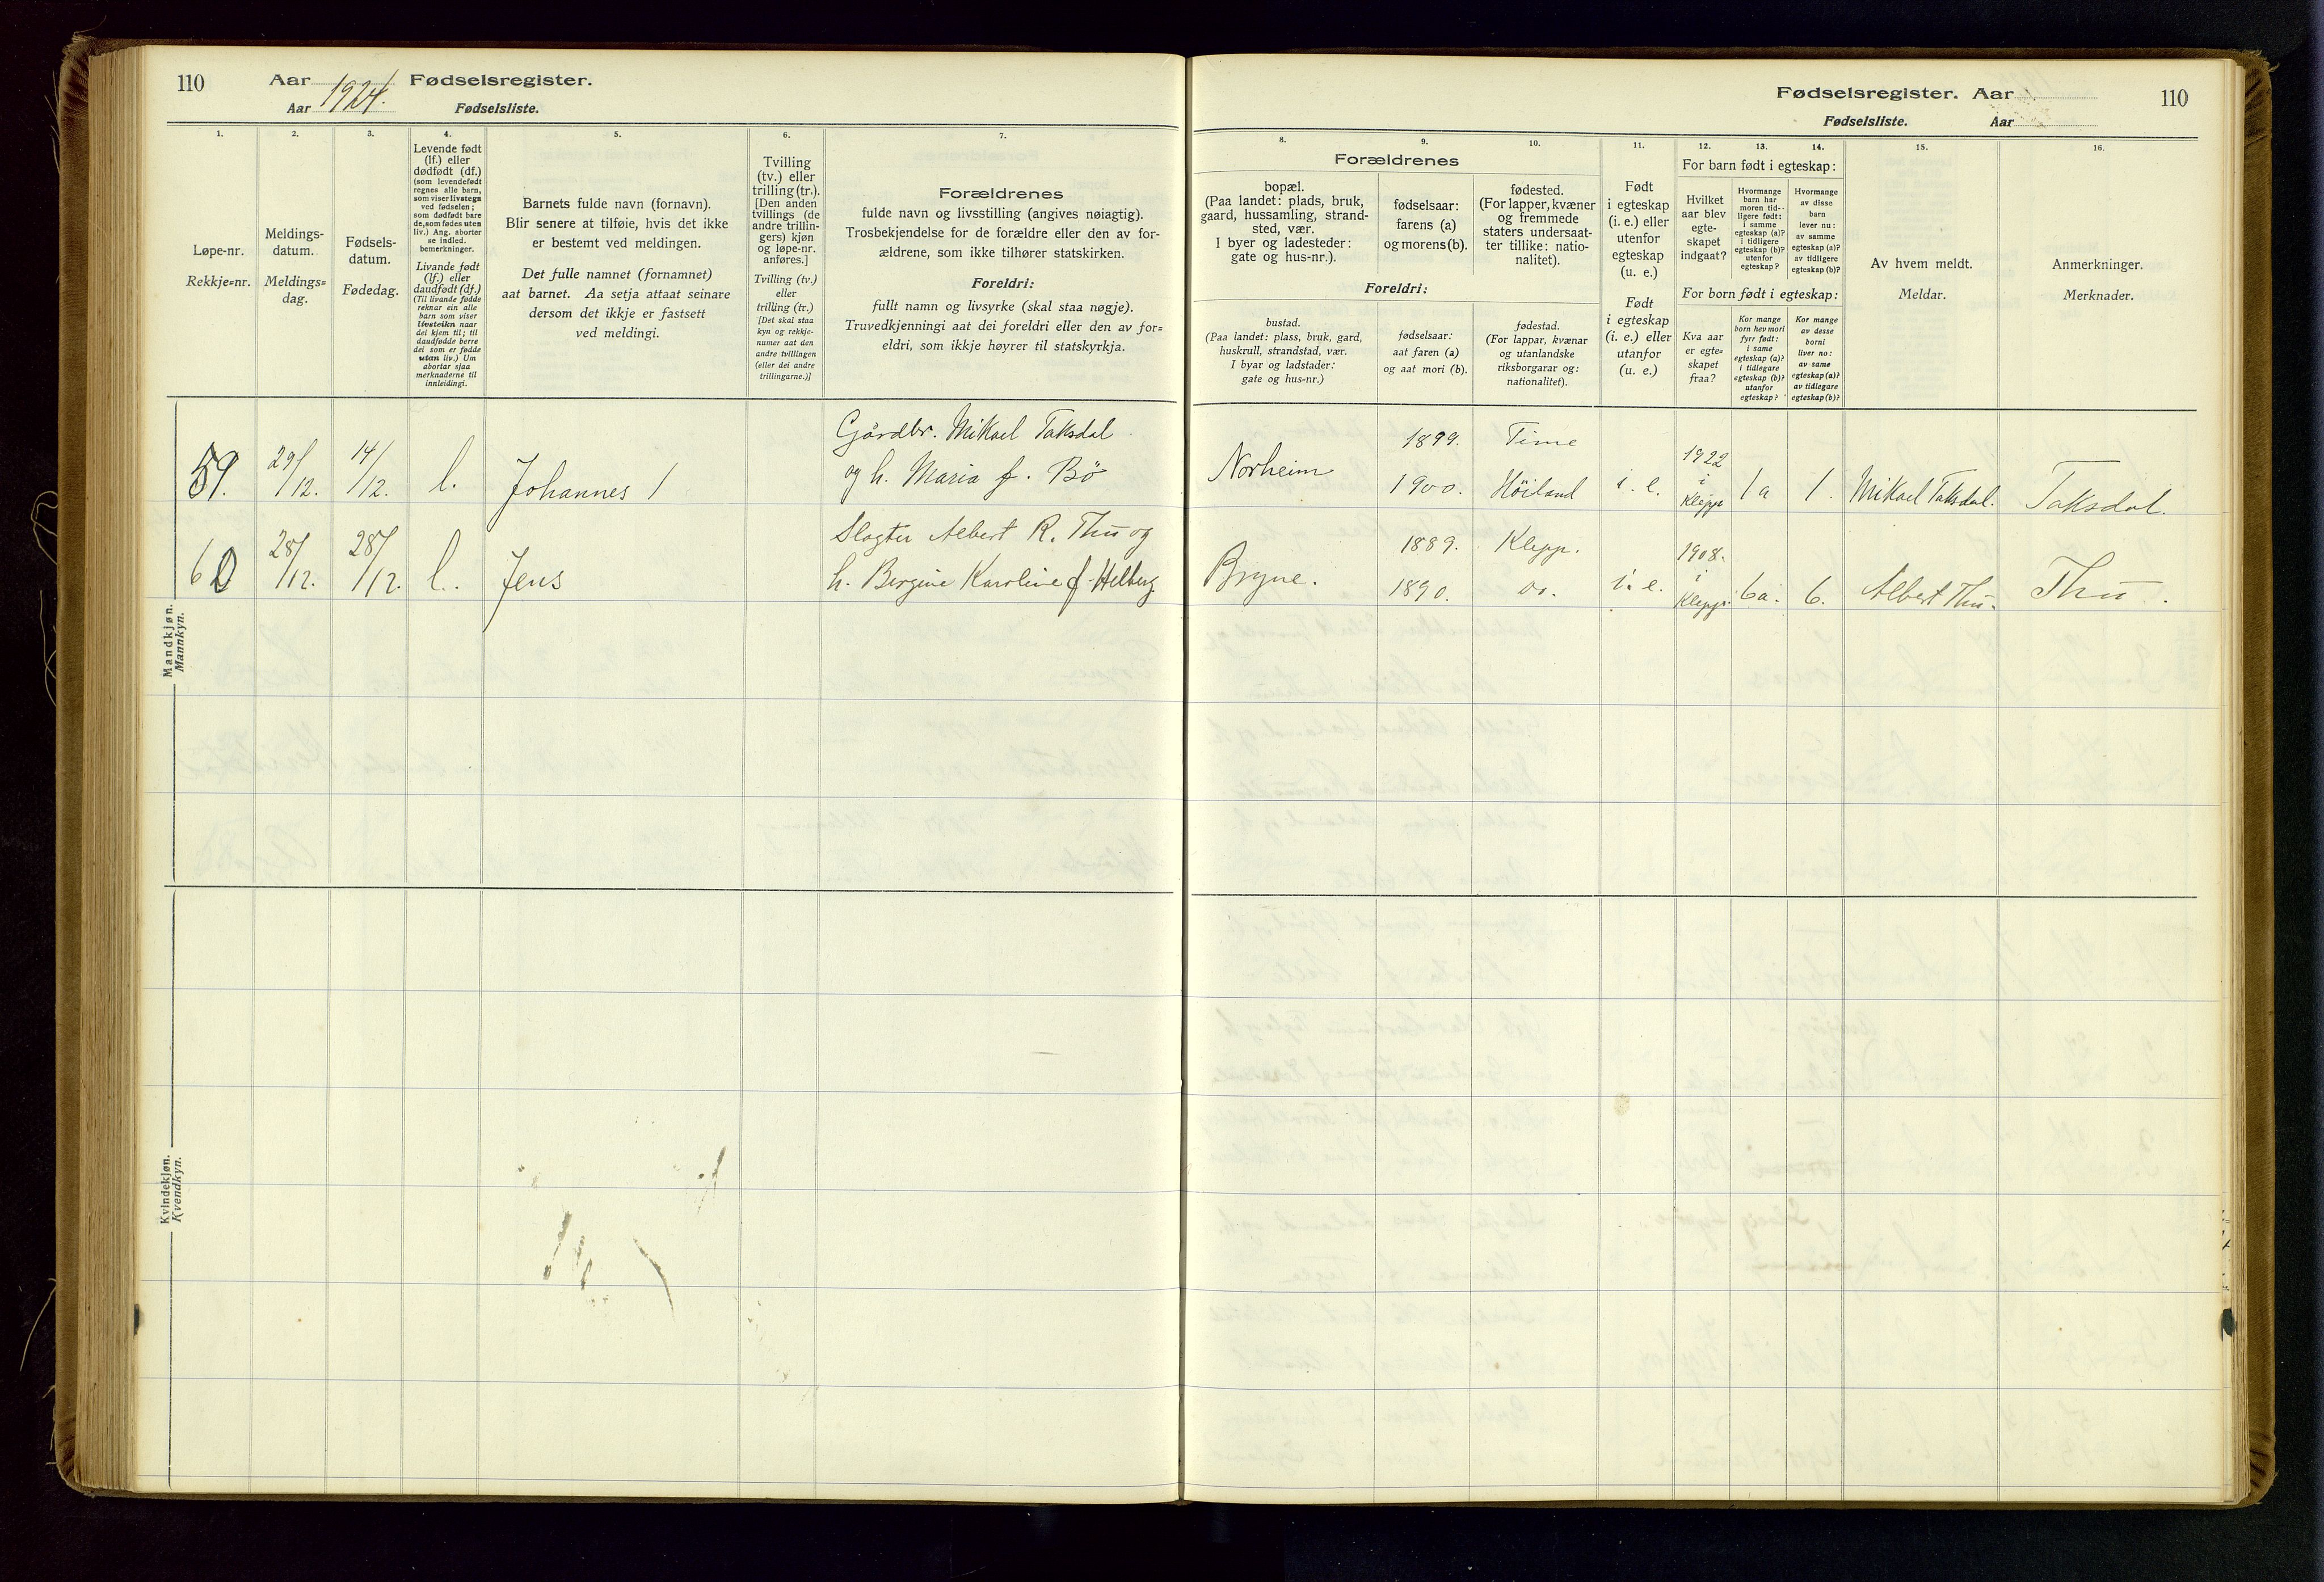 110 Aar 1924. Fødselsregister.
Aar Fødselsliste.
1. 2. 3. 4. 5. 6. 7.
Løpe-nr.
Rekkje=nr.
Meldings-
datum.
Meldings=
dag.
Fødsels-
datum.
Fødedag.
Levende født
(lf.) eller
dødfødt (df.)
(som levendefødt
regnes alle barn,
som viser livstegn
ved fødselen;
som dødfødt bare
de, som fødes uten
liv.) Ang. aborter
se indled.
bemerkninger.
Livande født
(lf.) eller
daudfødt (df.)
(Til livande fødde
reknar ein alle
barn som viser
livsteikn naar
dei kjem til; til
daudfødde berre
dei som er fødde
utan liv.) Um
abortar sjaa
merknaderne til
innleidingi.
Barnets fulde navn (fornavn).
Blir senere at tilføie, hvis det ikke
er bestemt ved meldingen.
Det fulle namnet (fornamnet)
aat barnet. Aa setja attaat seinare
dersom det ikkje er fastsett
ved meldingi.
Tvilling
(tv.) eller
trilling (tr.).
[Den anden
tvillings (de
andre trillin-
gers) kjøn
og løpe-nr.
anføres.]
Tvilling (tv.)
eller
trilling (tr.)
[Det skal staa
kyn og rekkje-
numer aat den
andre tvillingen
(eller dei andre
trillingarne.)]
Forældrenes
fulde navn og livsstilling (angives nøiagtig).
Trosbekjendelse for de forældre eller den av for-
ældrene, som ikke tilhører statskirken.
Foreldri:
fullt namn og livsyrke (skal staa nøgje).
Truvedkjenningi aat dei foreldri eller den av for=
eldri, som ikkje høyrer til statskyrkja.
Mandkjøn.
Mannkyn.
59. 29/12. 14/12. l. Johannes 1
Gårdbr. Mikael Taksdal
og h. Maria f. Bö
60 28/12. 28/12. l. Jens
Slagter Albert R. Thu og
h. Bergine Karoline f. Helberg.
Kvindekjøn.
Kvendkyn.
Fødselsregister. Aar 110
Fødselsliste. Aar
8. 9. 10. 11. 12. 13. 14. 15. 16.
Forældrenes
bopæl.
(Paa landet: plads, bruk,
gaard, hussamling, strand-
sted, vær.
I byer og ladesteder:
gate og hus-nr.).
fødselsaar:
farens (a)
og morens (b).
fødested.
(For lapper, kvæner
og fremmede
staters undersaat-
ter tillike: natio-
nalitet).
Foreldri:
bustad.
(Paa landet: plass, bruk, gard,
huskrull, strandstad, vær.
I byar og ladstader:
gate og hus=nr.)
fødselsaar:
aat faren (a)
og aat mori (b).
fødestad.
(For lappar, kvænar
og utanlandske
riksborgarar og:
nationalitet).
Født
i egteskap
(i. e.) eller
utenfor
egteskap
(u. e.)
Født
i egteskap
(i. e.) eller
utanfor
(u. e.)
For barn født i egteskap:
Hvilket
aar blev
egte-
skapet
indgaat?
Hvormange
barn har
moren tid-
ligere født:
i samme
egteskap (a)?
i tidligere
egteskap (b)?
utenfor
egteskap?
Hvormange
av disse
barn
lever nu:
av samme
egteskap (a)?
av tidligere
egteskap (b)?
For born født i egteskap:
Kva aar
er egte=
skapet
fraa?
Kor mange
born hev mori
fyrr født:
i same
egteskap (a)?
i tidlegare
egteskap (b)?
utanfor
egteskap?
Kor mange
av desse
borni
liver no:
av same
egteskap (a)?
av tidlegare
egteskap (b)?
Av hvem meldt.
Meldar.
Anmerkninger.
Merknader.
Norheim
1899. Time
1900. Höiland
i. e.
1922
i
Klepp
1a 1. Mikael Taksdal. Taksdal.
Bryne.
1889. Klepp.
1890. do.
i. e.
1908.
i
Klepp.
6a. 6. Albert Thu. Thu.